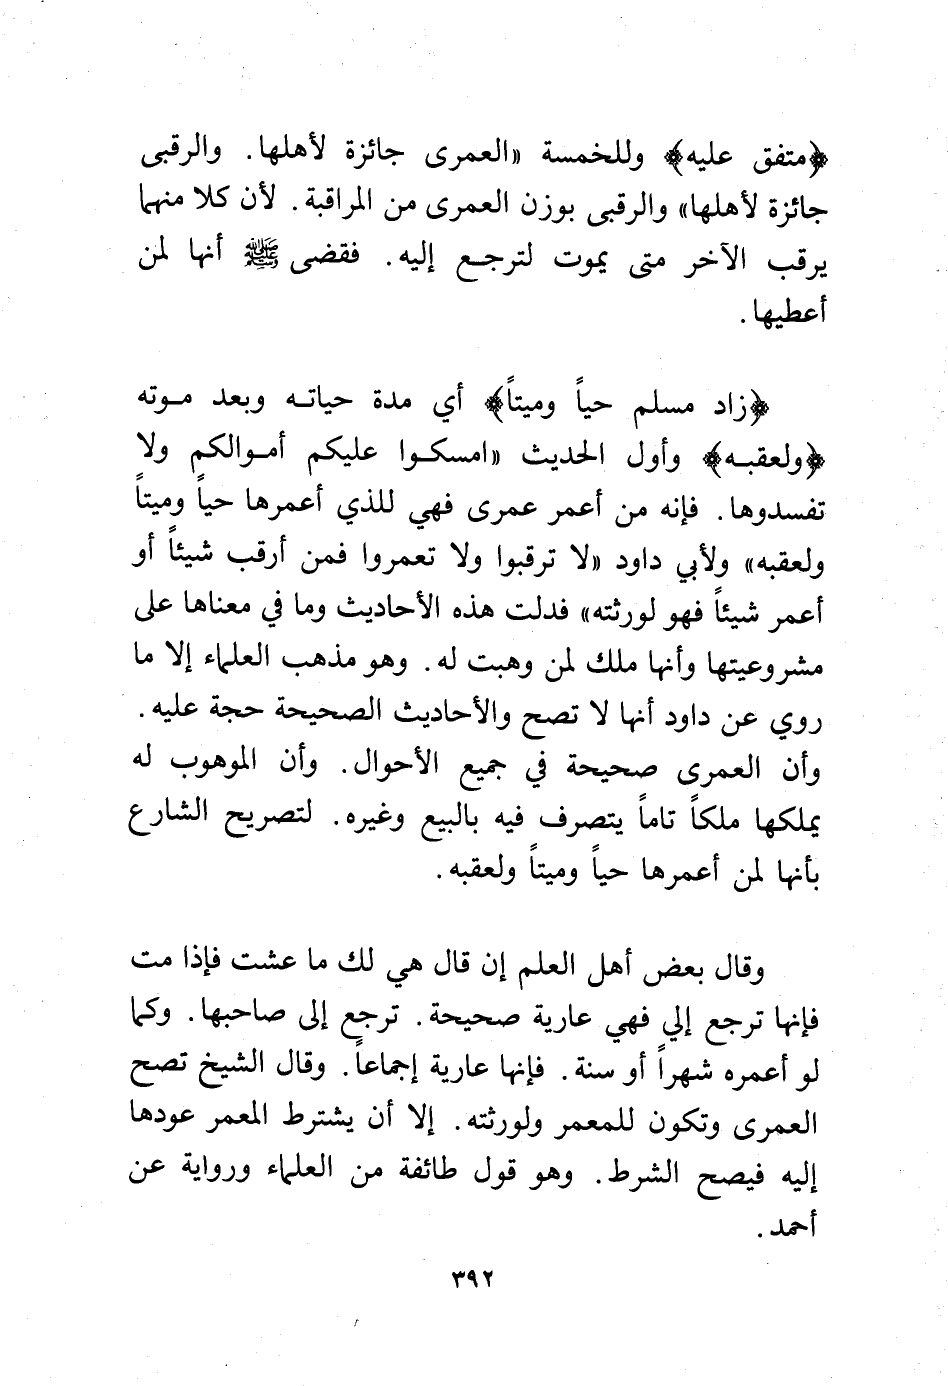 ﴿متفق عليه﴾ وللخمسة «العمرى جائزة لأهلها. والرقبى
جائزة لأهلها» والرقبى بوزن العمرى من المراقبة. لأن كلا منهما
يرقب الآخر متى يموت لترجع إليه. فقضى ﷺ أنها لمن
أعطيها.
﴿زاد مسلم حياً وميتاً﴾ أي مدة حياته وبعد موته
﴿ولعقبه﴾ وأول الحديث «امسكوا عليكم أموالكم ولا
تفسدوها. فإنه من أعمر عمرى فهي للذي أعمرها حياً وميتاً
ولعقبه» ولأبي داود «لا ترقبوا ولا تعمروا فمن أرقب شيئاً أو
أعمر شيئاً فهو لورثته» فدلت هذه الأحاديث وما في معناها على
مشروعيتها وأنها ملك لمن وهبت له. وهو مذهب العلماء إلا ما
روي عن داود أنها لا تصح والأحاديث الصحيحة حجة عليه.
وأن العمرى صحيحة في جميع الأحوال. وأن الموهوب له
يملكها ملكاً تاماً يتصرف فيه بالبيع وغيره. لتصريح الشارع
بأنها لمن أعمرها حياً وميتاً ولعقبه.
وقال بعض أهل العلم إن قال هي لك ما عشت فإذا مت
فإنها ترجع إلي فهي عارية صحيحة. ترجع إلى صاحبها. وكما
لو أعمره شهراً أو سنة. فإنها عارية إجماعاً. وقال الشيخ تصح
العمرى وتكون للمعمر ولورثته. إلا أن يشترط المعمر عودها
إليه فيصح الشرط. وهو قول طائفة من العلماء ورواية عن
أحمد.
٣٩٢